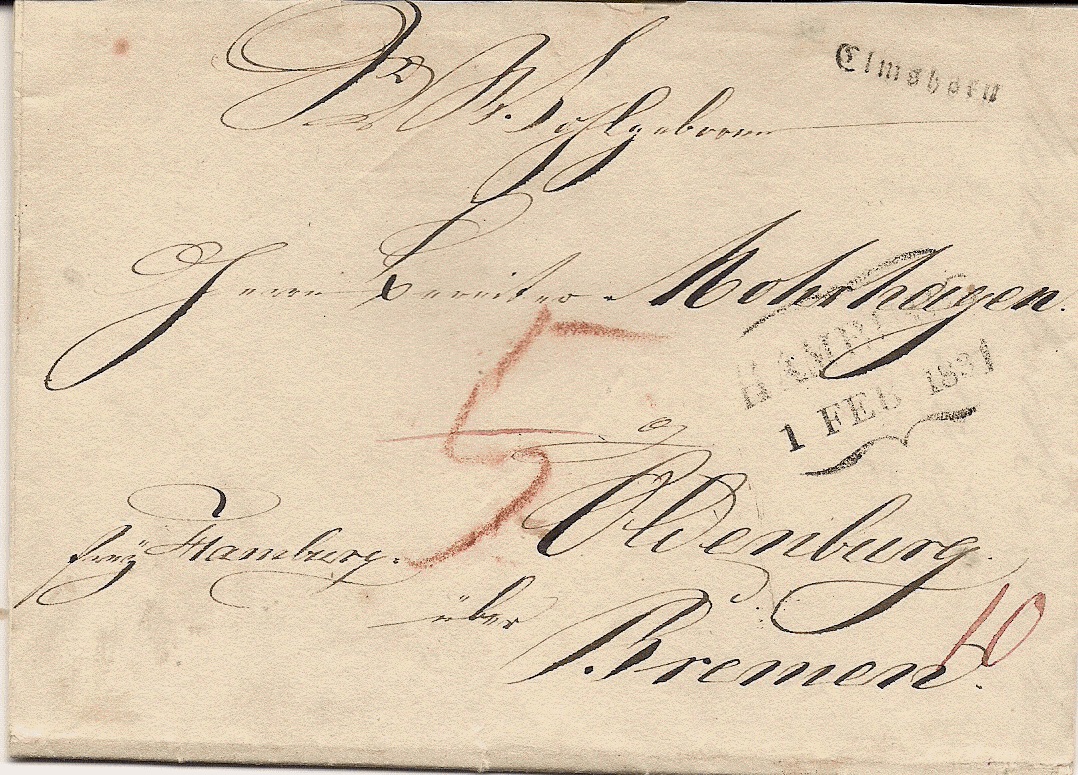 Elmshorn
Wohlgeboren
Herrn Bereiter Mohrhagen.
HAMBURG
1 FEB 1831
5
Oldenburg.
frey Hamburg.
über
Bremen.
10